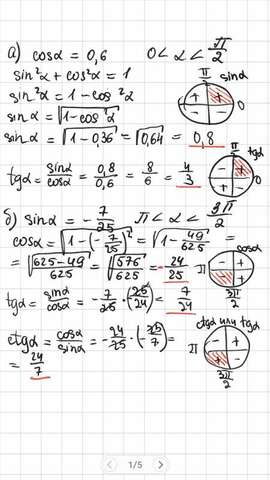 а) cosα = 0,6   0 < α < π/2
sin²α + cos²α = 1
sin²α = 1 - cos²α
sinα = √(1 - cos²α)
sinα = √(1 - 0,36) = √0,64 = 0,8
π/2 sinα
+ +
- -
0
tgα = sinα/cosα = 0,8/0,6 = 8/6 = 4/3
π/2 tgα
- +
+ -
0
б) sinα = - 7/25   π < α < 3π/2
cosα = √(1 - (-7/25)²) = √(1 - 49/625) =
= √((625 - 49)/625) = √(576/625) = - 24/25
cosα
- +
- +
π
3π/2
tgα = sinα/cosα = - 7/25 · (-25/24) = 7/24
ctgα = cosα/sinα = - 24/25 · (-25/7) =
= 24/7
ctgα или tgα
- +
+ -
π
3π/2
1/5